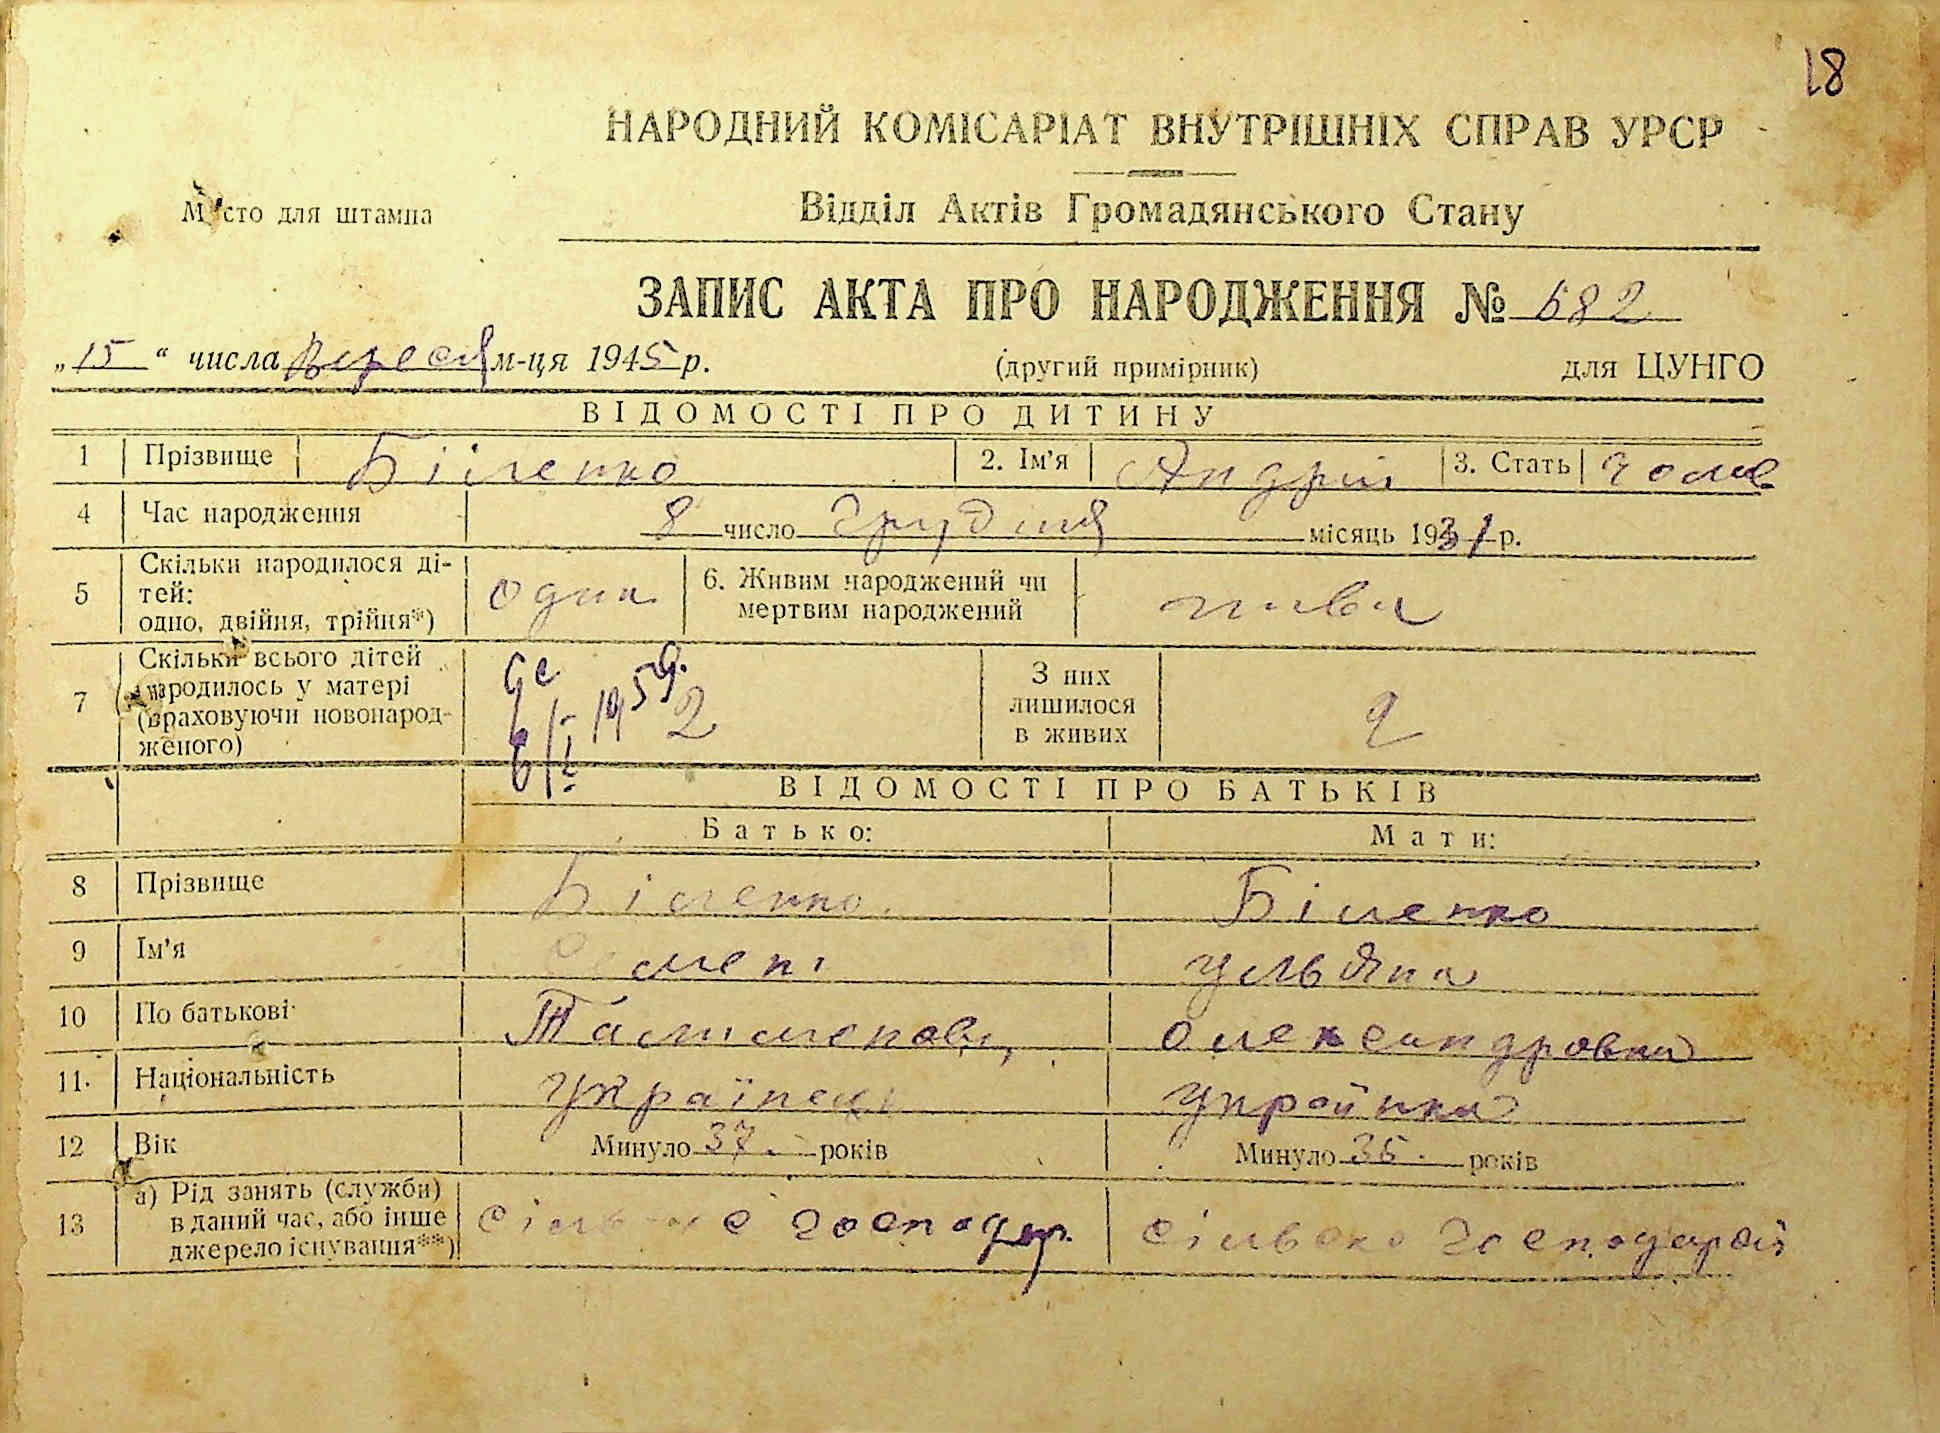 18
НАРОДНИЙ КОМІСАРІАТ ВНУТРІШНІХ СПРАВ УРСР
Місто для штампа
Відділ Актів Громадянського Стану
ЗАПИС АКТА ПРО НАРОДЖЕННЯ № 682
„15“ числа Вересня м-ця 1945 р. (другий примірник) для ЦУНГО
ВІДОМОСТІ ПРО ДИТИНУ
1 Прізвище Біленко 2. Ім'я Андрій 3. Стать чолов
4 Час народження 8 число Грудня місяць 1931 р.
5 Скільки народилося ді-
тей:
одно, двійня, трійня*) одна 6. Живим народжений чи
мертвим народжений жива
7 Скільки всього дітей
народилось у матері
(враховуючи новонарод-
женого) 2 З них
лишилося
в живих 2
6/I 1959
ВІДОМОСТІ ПРО БАТЬКІВ
Батько: Мати:
8 Прізвище Біленко Біленко
9 Ім'я Семен Ульяна
10 По батькові Олександровна
11. Національність Українец Украйнка
12 Вік Минуло 37 років Минуло 35 років
13 а) Рід занять (служби)
в даний час, або інше
джерело існування**) сільське господар. сільско господарстві